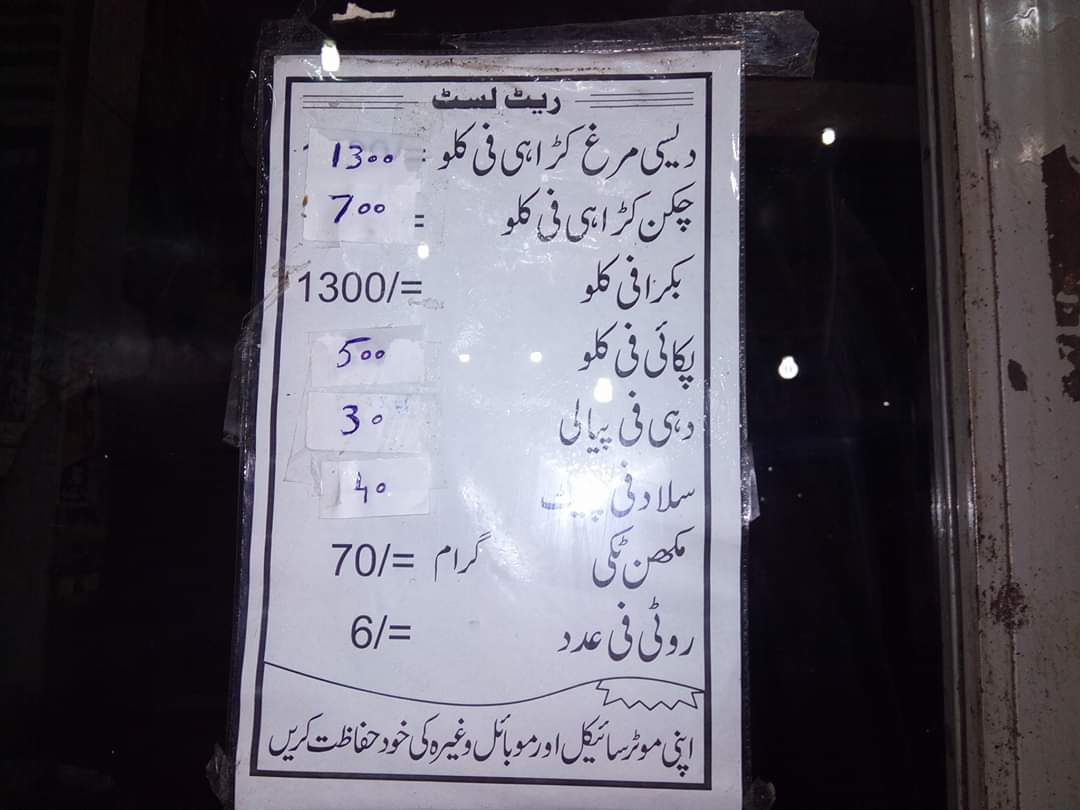 ریٹ لسٹ
دیسی مرغ کڑاہی فی کلو : 1300
چکن کڑاہی فی کلو = 700
بکرا فی کلو 1300/=
پکائی فی کلو 500
دہی فی پیالی 30
سلاد فی پلیٹ 40
مکھن ٹکی گرام 70/=
روٹی فی عدد 6/=
اپنی موٹر سائیکل اور موبائل وغیرہ کی خود حفاظت کریں